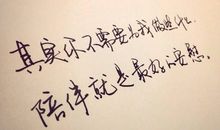 其实你不需要为我做这些
陪伴就是最好的安慰